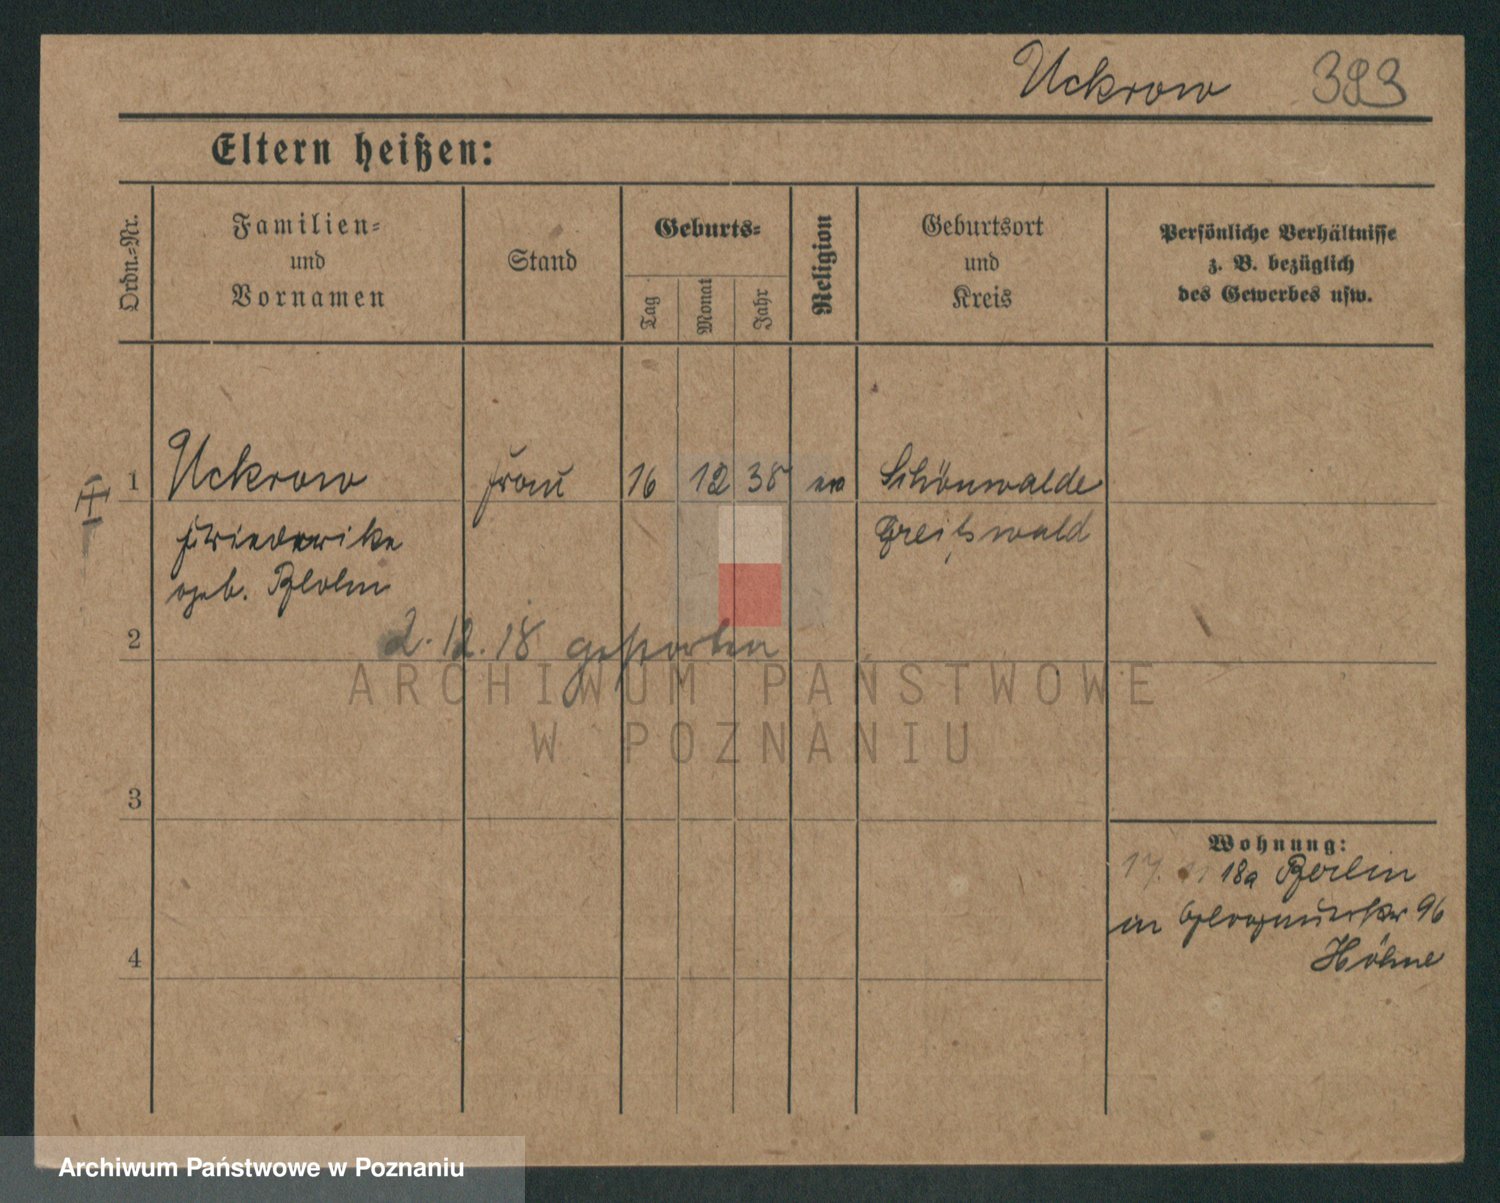 Uckrow 393
Eltern heißen:
Ordn.-Nr.
Familien-
und
Vornamen
Stand
Geburts-
Tag
Monat
Jahr
Religion
Geburtsort
und
Kreis
Persönliche Verhältnisse
z. B. bezüglich
des Gewerbes usw.
1 Uckrow Frau 16 12 38 ev Schönwalde
Friederike Greifswald
geb.
2
2.12.18 gestorben
ARCHIWUM PAŃSTWOWE
W POZNANIU
3
Wohnung:
18a Berlin
in 96
4
Höhne
Archiwum Państwowe w Poznaniu